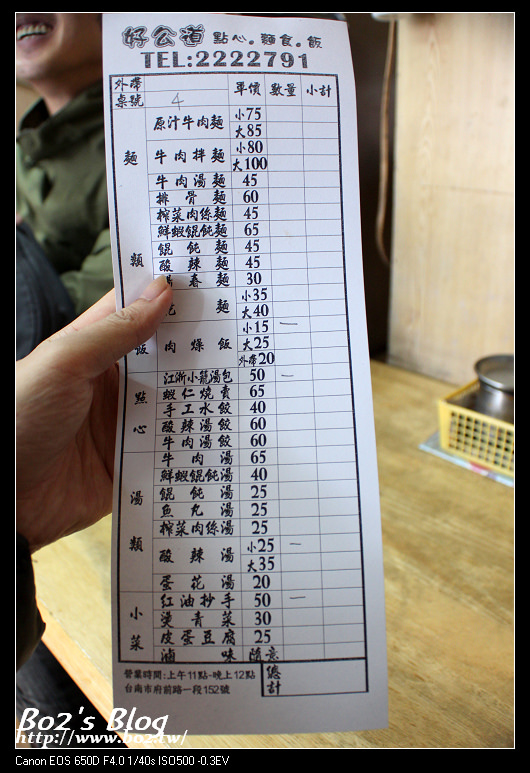 好公道 點心。麵食。飯
TEL:2222791
外帶
桌號 4 單價 數量 小計
麵類
原汁牛肉麵 小75
大85
牛肉拌麵 小80
大100
牛肉湯麵 45
排骨麵 60
榨菜肉絲麵 45
鮮蝦餛飩麵 65
餛飩麵 45
酸辣麵 45
春麵 30
麵 小35
大40
飯 肉燥飯 小15 一
大25
外帶20
點心
江浙小籠湯包 50 一
蝦仁燒賣 65
手工水餃 40
酸辣湯餃 60
牛肉湯餃 60
湯類
牛肉湯 65
鮮蝦餛飩湯 40
餛飩湯 25
魚丸湯 25
榨菜肉絲湯 25
酸辣湯 小25 一
大35
蛋花湯 20
小菜
紅油抄手 50 一
燙青菜 30
皮蛋豆腐 25
滷味 隨意
營業時間:上午11點-晚上12點
台南市府前路一段152號
總計
Bo2's Blog
http://www.bo2.tw/
Canon EOS 650D F4.0 1/40s ISO500 -0.3EV